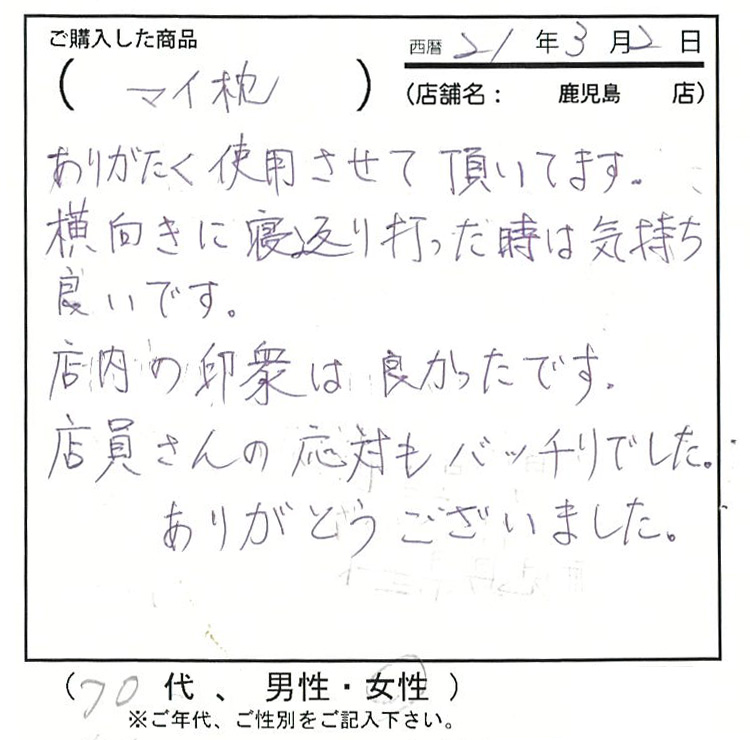 ご購入した商品
西暦 21 年 3 月 2 日
( マイ枕 )
(店舗名: 鹿児島 店)
ありがたく使用させて頂いてます。
横向きに寝返り打った時は気持ち
良いです。
店内の印衆は良かったです。
店員さんの応対もバッチリでした。
ありがとうございました。
(70代、男性・女性)
※ご年代、ご性別をご記入下さい。